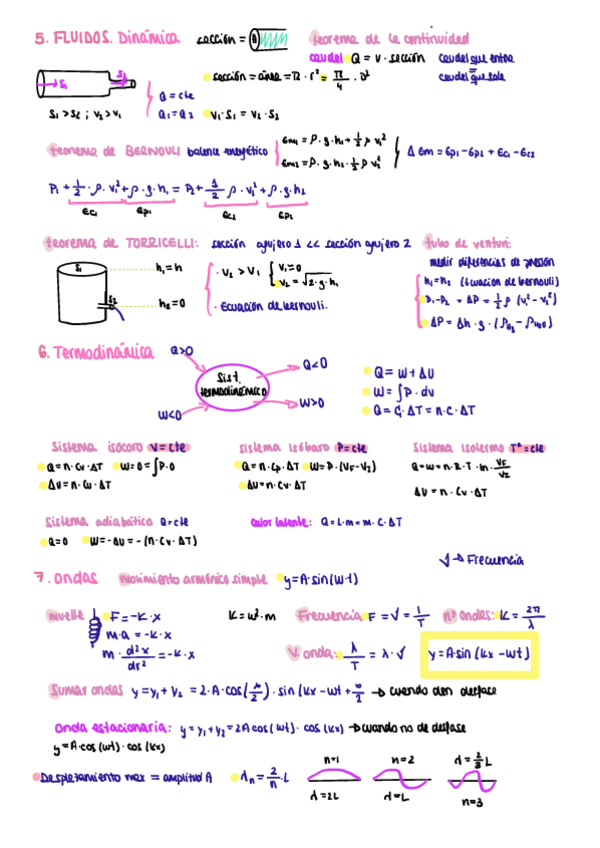 5. FLUIDOS. Dinámica sección = A teorema de la continuidad
caudal Q = v · sección caudal que entra = caudal que sale
sección = área = π · r² = π/4 · D²
S₁ S₂
S₁ > S₂ ; v₂ > v₁
Q = cte
Q₁ = Q₂ v₁ · S₁ = v₂ · S₂
teorema de BERNOULI balance energético
Em₁ = ρ · g · h₁ + ½ ρ v₁²
Em₂ = ρ · g · h₂ · ½ ρ v₂²
Δ Em = Ep₁ - Ep₂ + Ec₁ - Ec₂
P₁ + ½ · ρ · v₁² + ρ · g · h₁ = P₂ + ½ ρ · v₂² + ρ · g · h₂
Ec₁ Ep₁ Ec₂ Ep₂
teorema de TORRICELLI: sección agujero 1 << sección agujero 2
S₁ h₁ = h
S₂ h₂ = 0
· v₂ > v₁
v₁ = 0
v₂ = √2 · g · h₁
· Ecuación de bernouli.
tubo de venturi:
medir diferencias de presión
h₁ = h₂ (Ecuación de bernouli)
P₁ - P₂ = ΔP = ½ ρ (v₂² - v₁²)
ΔP = Δh · g · (ρHg - ρH₂O)
6. Termodinámica Q>0 Q<0
Sist. termodinámico
W<0 W>0
Q = W + ΔU
W = ∫P · dv
Q = C · ΔT = n · C · ΔT
Sistema isócoro V = cte
Q = n · Cv · ΔT W = 0 = ∫P · 0
ΔU = n · Cv · ΔT
sistema isóbaro P = cte
Q = n · Cp · ΔT W = P · (VF - VI)
ΔU = n · Cv · ΔT
Sistema isotermo Tª = cte
Q = W = n · R · T · ln · VF/VI
ΔU = n · Cv · ΔT
Sistema adiabático Q = cte
Q = 0 W = -ΔU = -(n · Cv · ΔT)
calor latente: Q = L · m = m · C · ΔT
√ → Frecuencia
7. Ondas movimiento armónico simple y = A · sin(w · t)
muelle F = -K · x
m · a = -K · x
m · d²x/dt² = -K · x
K = w² · m
Frecuencia F = √ = 1/T nº ondas: K = 2π/λ
V. onda: λ/T = λ · √
y = A sin (kx - wt)
Sumar ondas y = y₁ + y₂ = 2 · A · cos(φ/2) · sin (kx - wt + φ/2 → cuando den desfase
Onda estacionaria: y = y₁ + y₂ = 2A cos (wt) · cos (kx) → cuando no de desfase
y = A · cos (wt) · cos (kx)
Desplazamiento max = amplitud A λn = 2/n · L
n=1 n=2 λ = 2/3 L
λ = 2L λ = L n=3